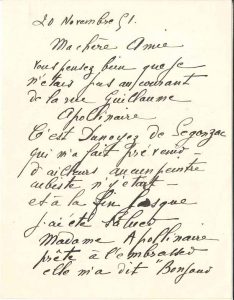 20 Novembre 51.
Ma chère Amie
vous pensez bien que je
n'étais pas au courant
de la rue Guillaume
Apollinaire
C'est Dunoyer de Segonzac
qui m'a fait prévenir
d'ailleurs aucun peintre
n'était
et à la fin lorsque
j'ai été saluer
Madame Apollinaire
prête à l'embrasser
elle m'a dit "Bonjour